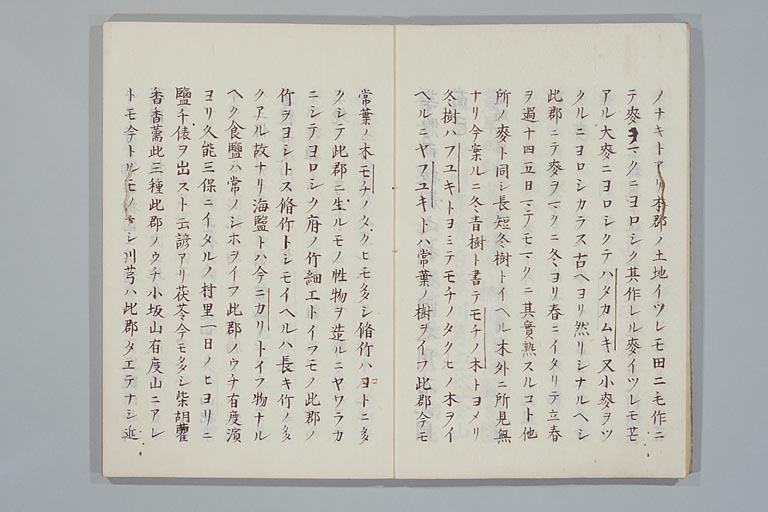 ノナキトアリ本郡ノ土地イツレモ田ニ毛作ニ
テ麥ヲマクニヨロシク其作レル麥イツレモ芒
アル大麥ニヨロシクテハタカムキ又小麥ヲツ
クルニヨロシカラス古ヘヨリ然リシナルヘシ
此郡ニテ麥ヲマクニ冬ヨリ春ニイタリテ立春
ヲ過十四五日マテモマクニ其實熟スルコト他
所ノ麥ト同シ長短冬樹トイヘル木外ニ所見無
ナリ今案ルニ冬青樹ト書テモチノ木トヨメリ
冬樹ハフユキトヨミテモチノタクヒノ木ヲイ
ヘルニヤフユキトハ常葉ノ樹ヲイフ此郡今モ
常葉ノ木モチノタクヒモ多シ脩竹ハヨトニ多
クシテ此郡ニ生ルモノ性物ヲ造ルニヤワラカ
ニシテヨロシク府ノ竹細エトイフモノ此郡ノ
竹ヲヨシトス脩竹トシモイヘルハ長キ竹ノ多
クアル故ナリ海鹽トハ今ニカリトイフ物ナル
ヘク食鹽ハ常ノシホヲイフ此郡ノウチ有度濱
ヨリ久能三保ニイタルノ村里一日ノヒヨリニ
鹽千俵ヲ出スト云諺アリ茯苓今モ多シ柴胡藿
香香薷此三種此郡ノウチ小坂山有度山ニアレ
トモ今トルモノナシ川芎ハ此郡タエテナシ近